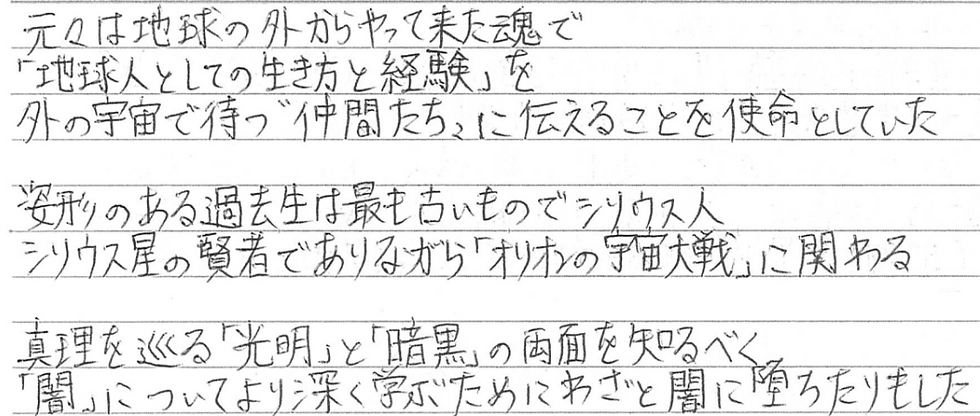 元々は地球の外からやって来た魂で
「地球人としての生き方と経験」を
外の宇宙で待つ〝仲間たち〟に伝えることを使命としていた
姿形のある過去生は最も古いものでシリウス人
シリウス星の賢者でありながら「オリオンの宇宙大戦」に関わる
真理を巡る「光明」と「暗黒」の両面を知るべく
「闇」についてより深く学ぶためにわざと闇に堕ちたりもした